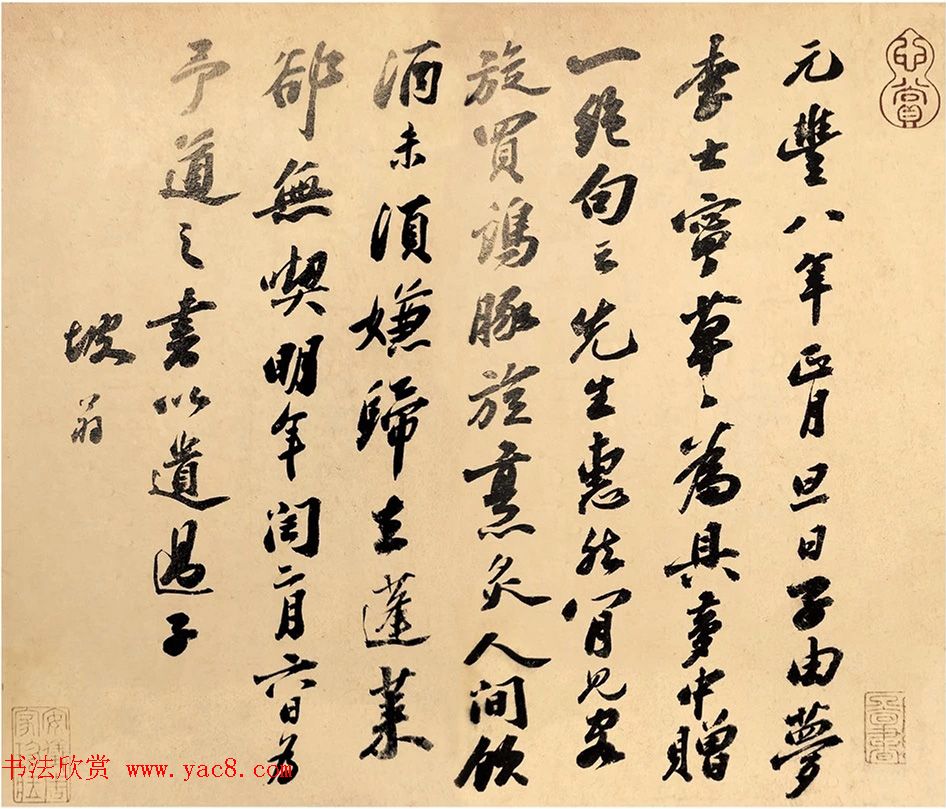 心賞
元豐八年正月旦日子由夢
李士寧草〻為具夢中贈
一絶句云先生惠然肯見客
旋買鷄豚旋烹炙人間飲
酒未須嫌歸去蓬莱
卻無喫明年閏二月六日為
予道之書以遺過子
坡翁
安儀周家珍藏
书法欣赏 www.yac8.com